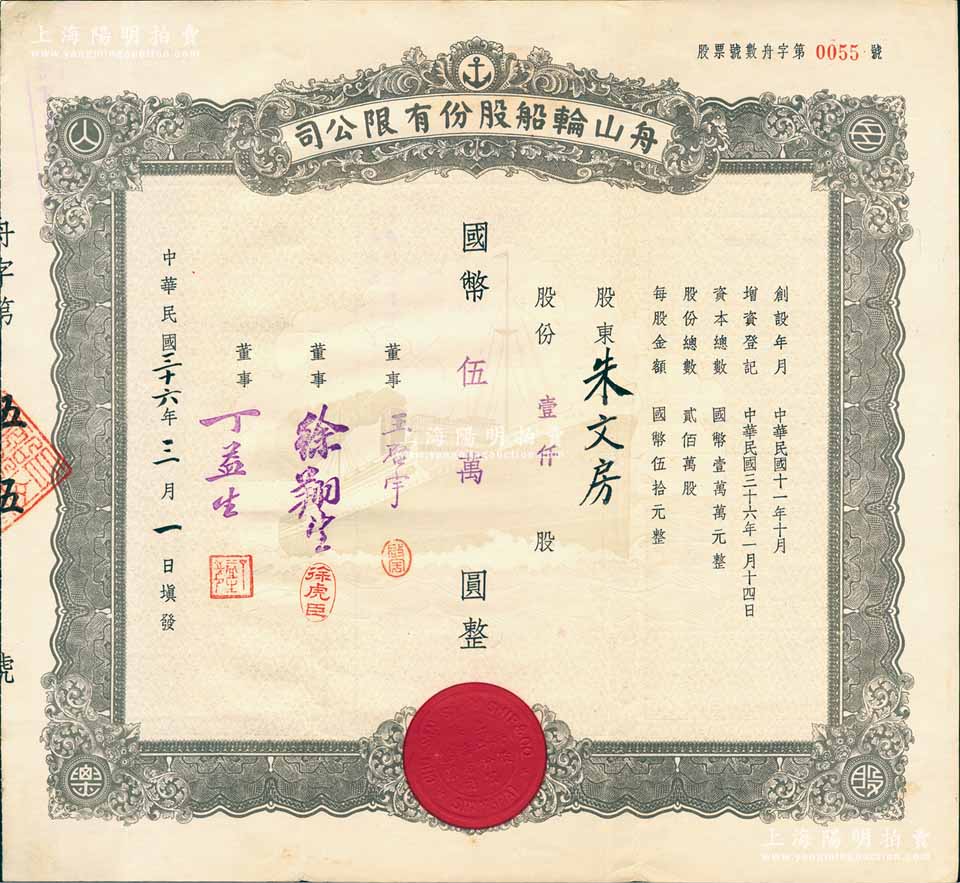 上海陽明拍賣
www.yangmingauction.com
股票號數舟字第 0055 號
舟山輪船股份有限公司
創設年月 中華民國十一年十月
增資登記 中華民國三十六年一月十四日
資本總數 國幣壹萬萬元整
股份總數 貳佰萬股
每股金額 國幣伍拾元整
股東 朱文房
股份 壹仟 股
國幣 伍萬 圓整
董事
董事 徐
徐虎臣
董事 丁益生
中華民國三十六年三月一日填發
舟字第
五五
號
上海陽明拍賣
www.yangmingauction.com
上海陽明拍賣
www.yangmingauction.com